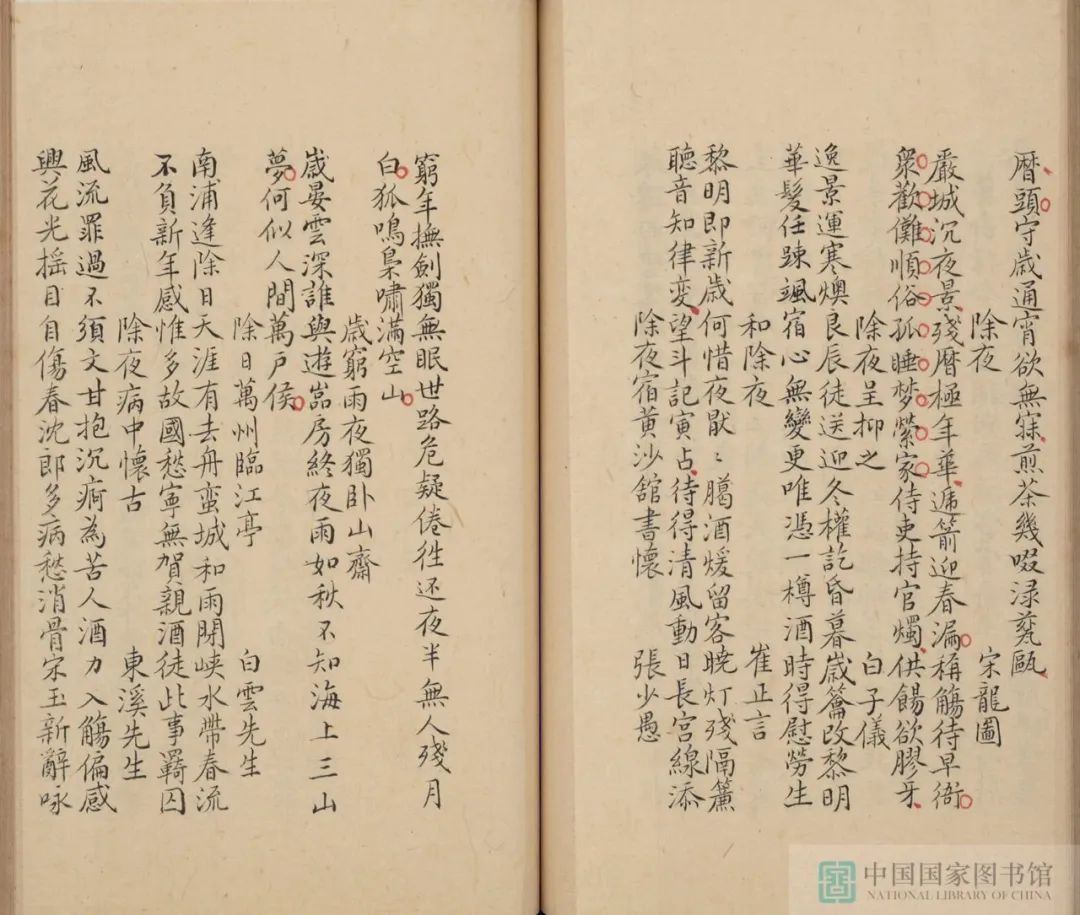 曆頭守歲通宵欲無寐煎茶幾啜渌甆甌
除夜 宋龍圖
嚴城沉夜景殘曆極年華遞箭迎春漏稱觴待早衙
衆歡儺順俗孤睡梦縈家侍吏持官燭供餳欲膠牙
除夜呈抑之 白子儀
逸景運寒燠良辰徒送迎冬權訖昏暮歲籥改黎明
華髮任踈颯宿心無變更唯憑一樽酒時得慰勞生
和除夜 崔正言
黎明即新歲何惜夜厭〻臈酒煖留客曉灯殘隔簾
聽音知律变望斗記寅占待得清風動日長宮線添
除夜宿黄沙舘書懷 張少愚
窮年撫劍獨無眠世路危疑倦徃还夜半無人殘月
白狐鳴梟嘯滿空山
歲窮雨夜獨卧山齋
歲晏雲深誰與遊嵓房終夜雨如秋不知海上三山
夢何似人間萬戶侯
除日萬州臨江亭 白雲先生
南浦逢除日天涯有去舟蛮城和雨閉峽水帶春流
不負新年感惟多故國愁寧無賀親酒徒此事羇囚
除夜病中懷古 東溪先生
風流罪過不須文甘抱沉痾為苦人酒力入觴偏感
興花光揺目自傷春沈郎多病愁消骨宋玉新辭咏
中国国家图书馆
NATIONAL LIBRARY OF CHINA